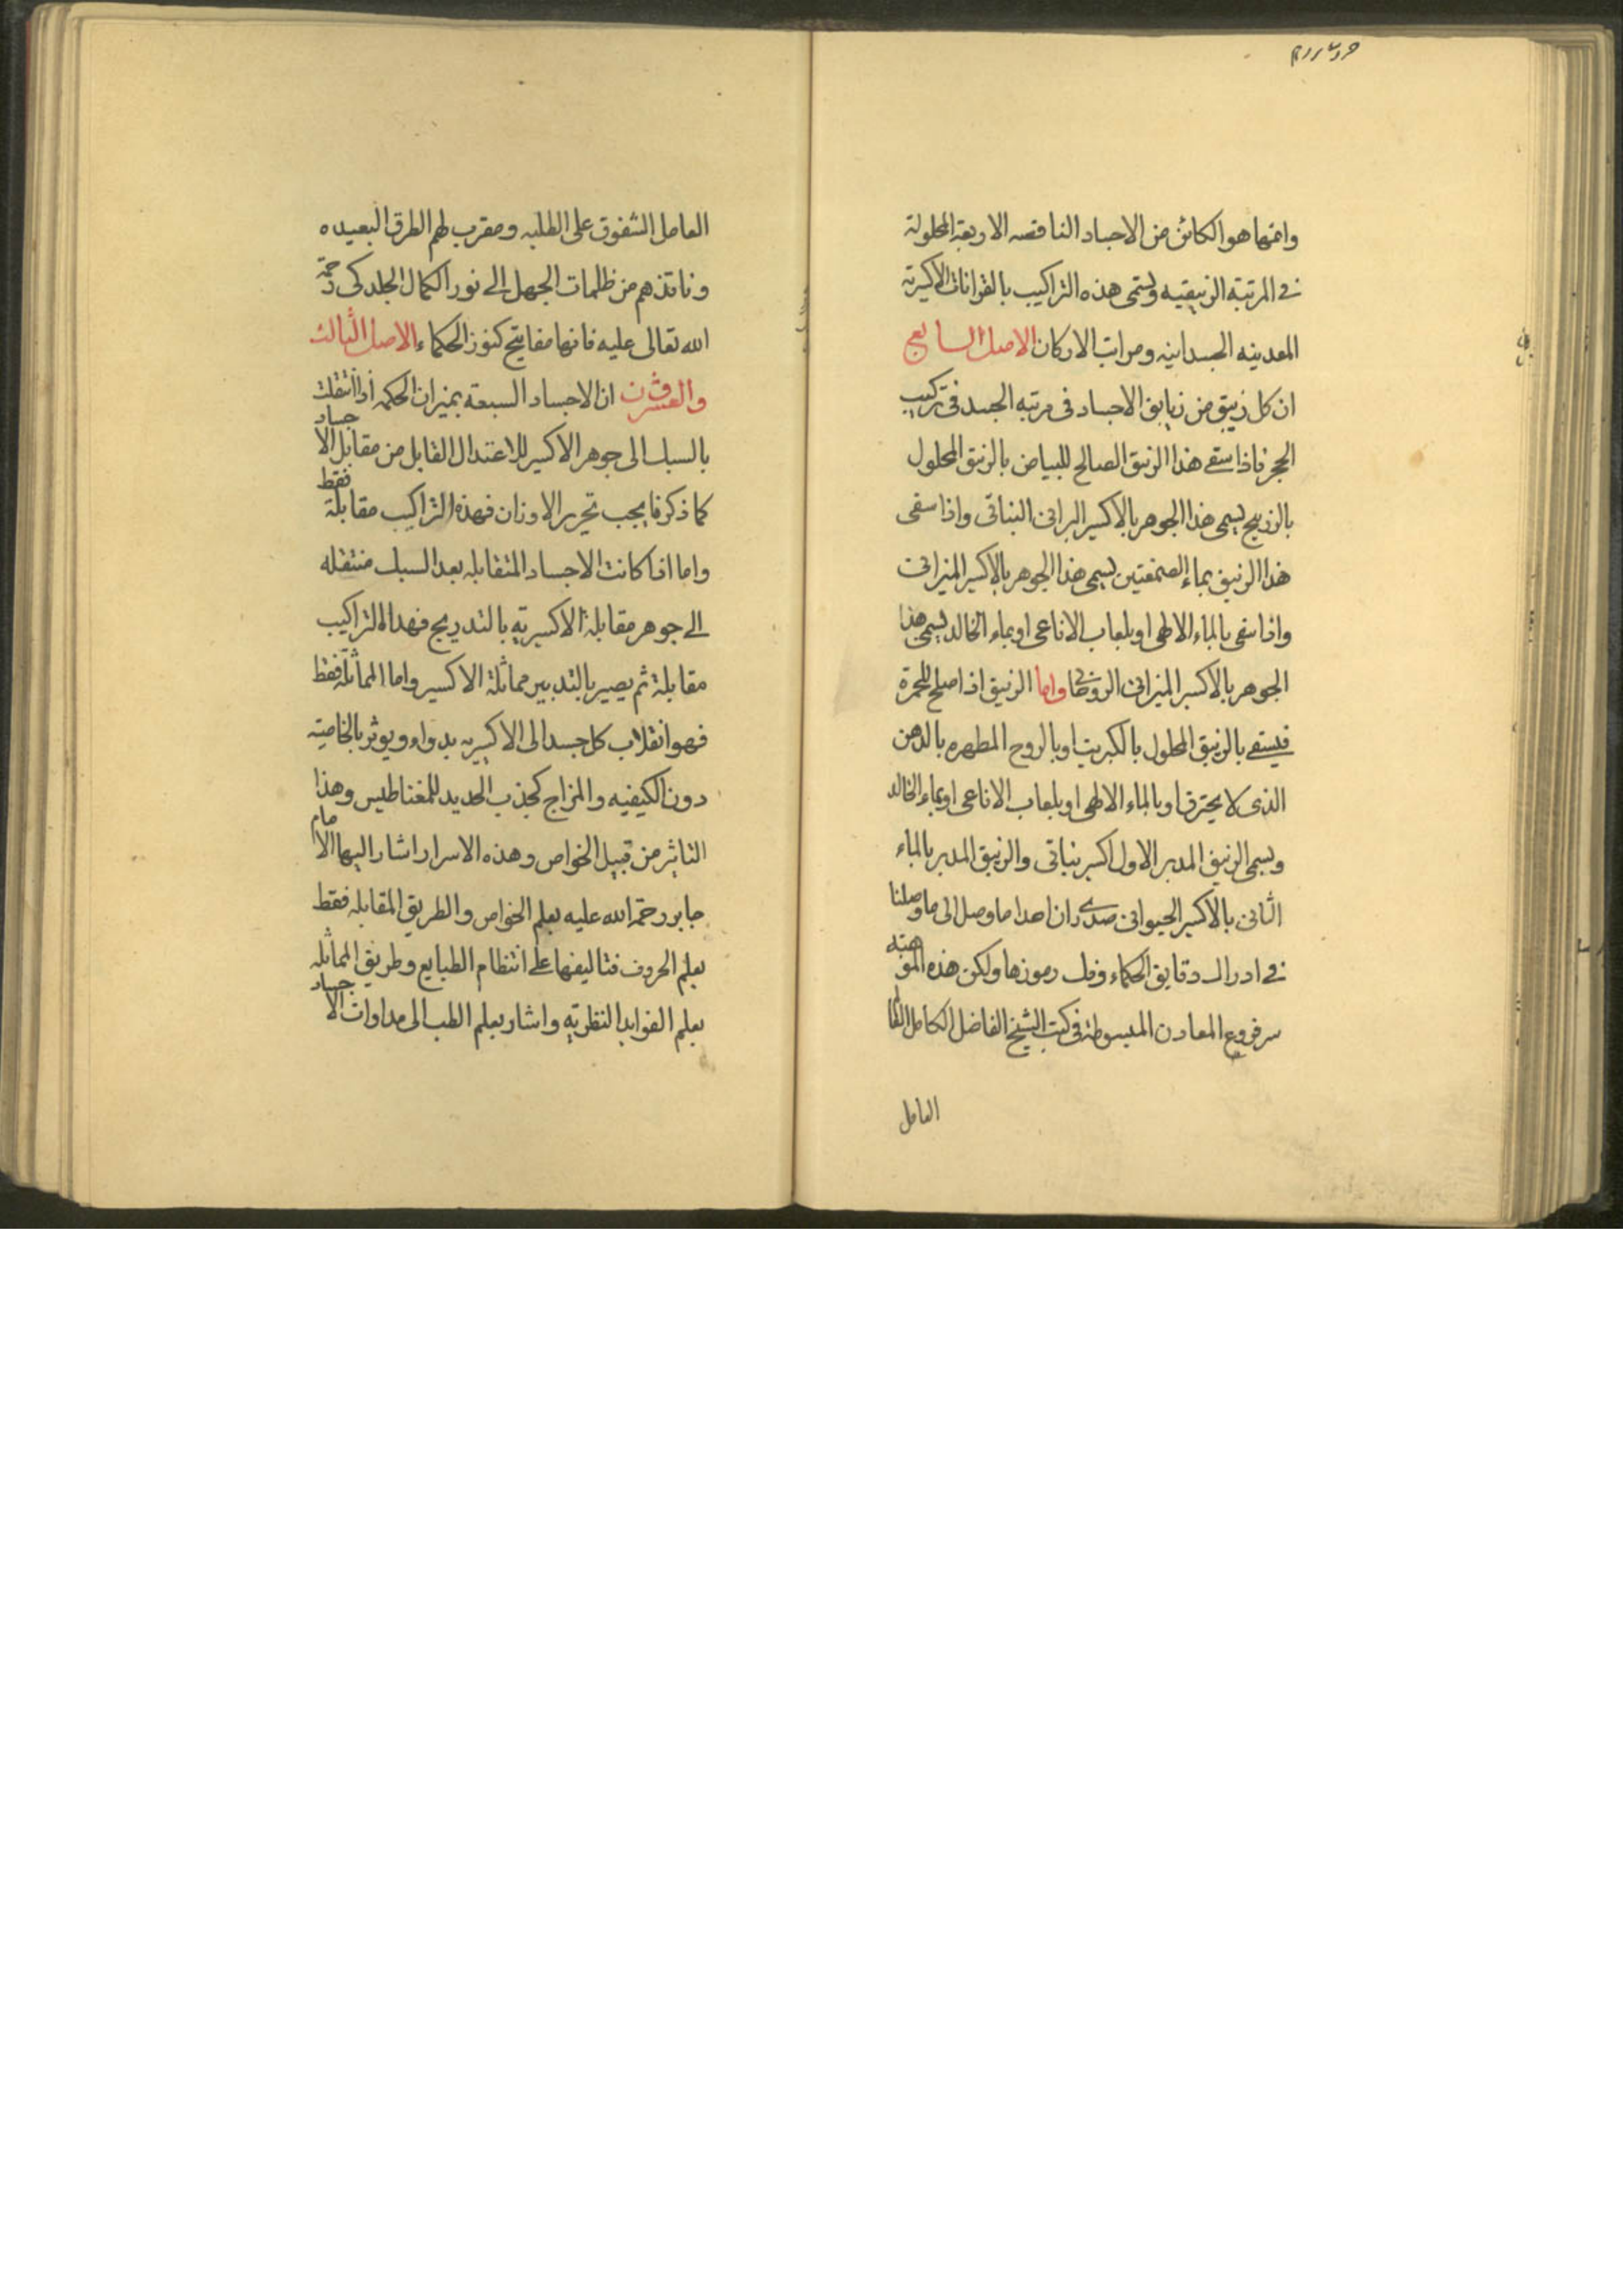 واتمها هو الكائن من الاجساد الناقصه الاربعة المحلولة
فى المرتبة الزيبقيه وتسمى هذه التراكيب بالقرانات الاكسيرية
المعدنيه الجسدانيه ومراتب الاركان الاصل السابع
ان كل زيبق من زيابق الاجساد فى مرتبه الجسد فى تركيب
الحجر فاذا سقى هذا الزيبق الصالح للبياض بالزيبق المحلول
بالزرنيخ يسمى هذا الجوهر بالاكسير البرانى النباتى واذا سقى
هذا الزيبق بماء الصمغتين يسمى هذا الجوهر بالاكسير الميزانى
واذا سقى بالماء الالهى او بلعاب الافاعى او بماء الخالد يسمى هذا
الجوهر بالاكسير الميزانى الروحانى واما الزيبق اذا صلح للحمرة
فيسقى بالزيبق المحلول بالكبريت او بالروح المطهره بالدهن
الذى لا يحترق او بالماء الالهى او بلعاب الافاعى او بماء الخالد
ويسمى الزيبق المدبر الاول اكسير نباتى والزيبق المدبر بالماء
الثانى بالاكسير الحيوانى ان احدا ما وصل الى ما وصلنا
فى ادراك دقايق الحكماء وفك رموزها ولكن هذه الموهبته
سر فروع المعادن المبسوطة فى كتب الشيخ الفاضل الكامل
العامل
العامل الشفوق على الطلبه ومقرب لهم الطرق البعيده
وناقذهم من ظلمات الجهل الى نور الكمال الجلدكى رحمة
الله تعالى عليه فانها مفاتيح كنوز الحكماء الاصل الثالث
والعشرون ان الاجساد السبعة بميزان الحكمه اذا انتقلت
بالسبك الى جوهر الاكسير للاعتدال القابل من مقابل الاجساد
كما ذكرنا يجب تحرير الاوزان فهذه التراكيب مقابلة فقط
واما اذا كانت الاجساد المتقابله بعد السبك منتقله
الى جوهر مقابلة الاكسيرية بالتدريج فهذا التراكيب
مقابلة ثم يصير بالتدبير مماثلة الاكسير واما المماثلة فقط
فهو انقلاب كل جسد الى الاكسيريه بدواء ويوثر بالخاصية
دون الكيفيه والمزاج كجذب الحديد للمغناطيس وهذا
التاثير من قبيل الخواص وهذه الاسرار اشار اليها الامام
جابر رحمة الله عليه بعلم الخواص والطريق المقابله فقط
بعلم الحروف فتاليفها على انتظام الطبايع وطريق المماثله
بعلم الفوايد النظرية واشار بعلم الطب الى مداوات الاجساد